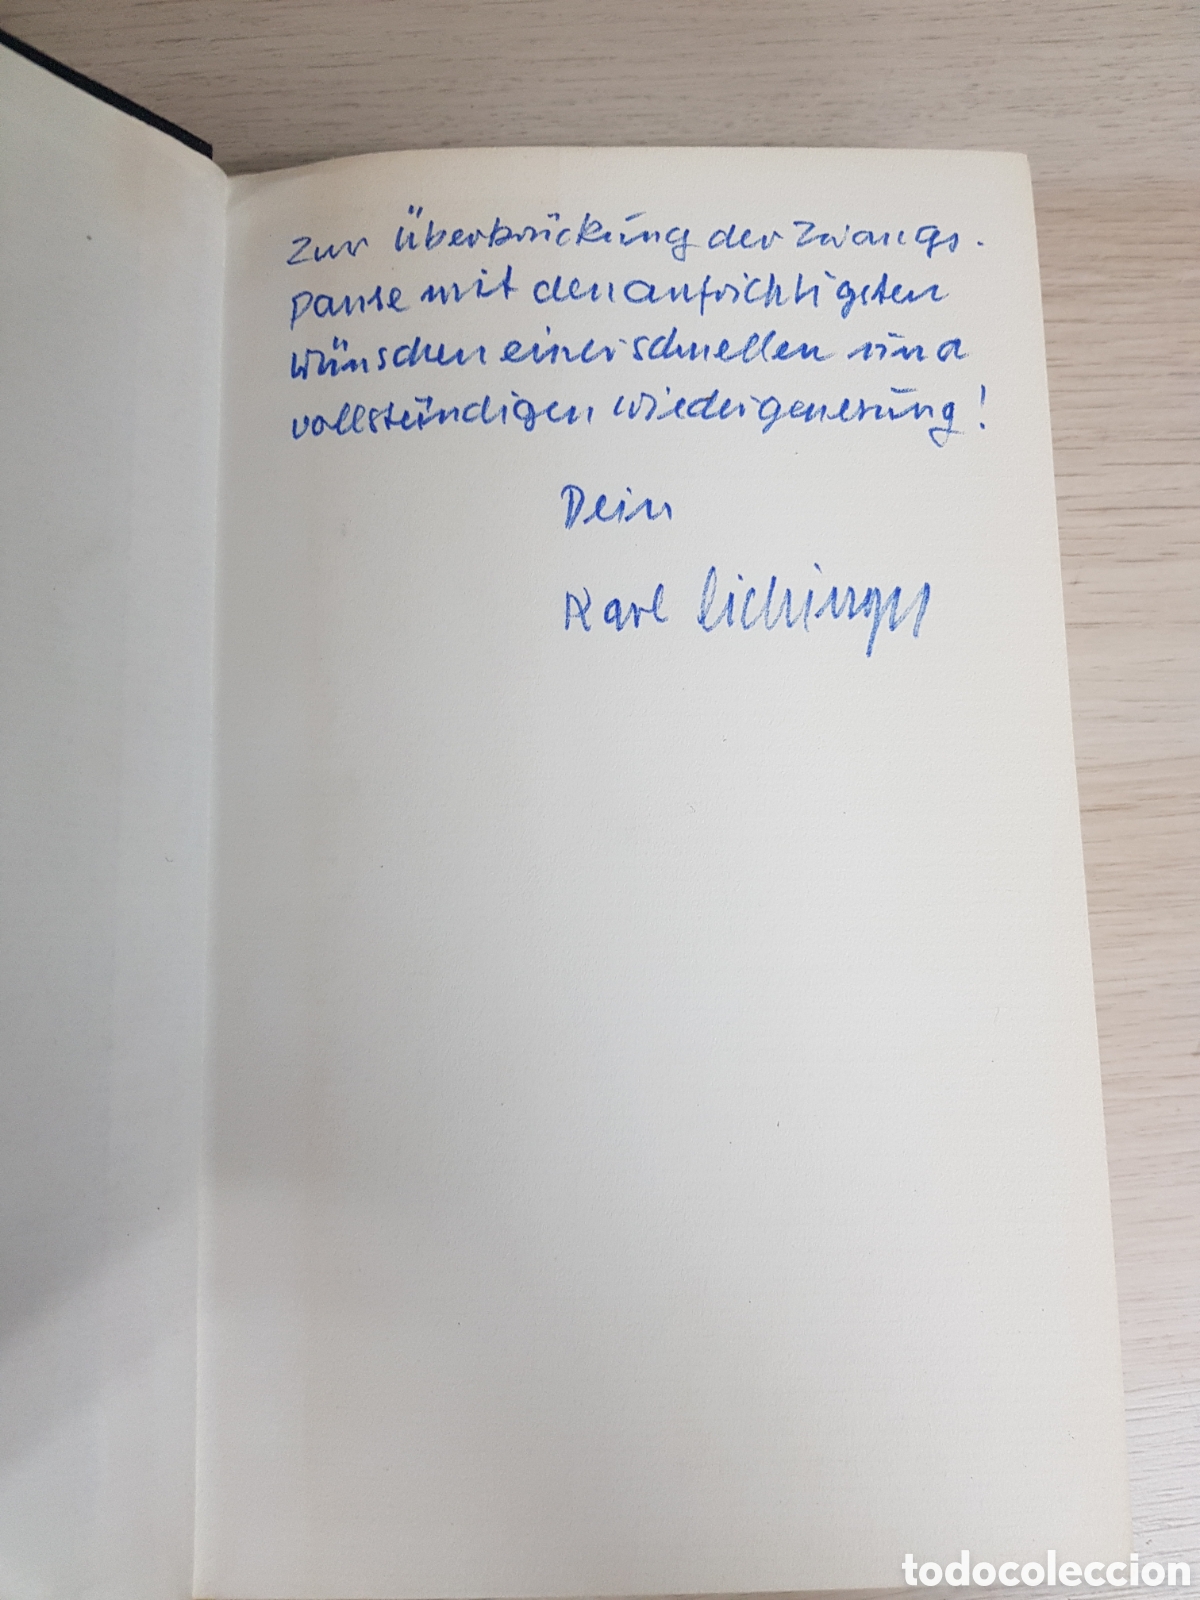 Zur Überbrückung der Zwangs-
pause mit den aufrichtigsten
Wünschen einer schnellen und
vollständigen Wiedergenesung!
Dein
Karl Eichinger
todocoleccion